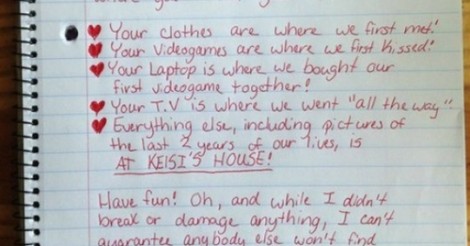 Your clothes are where we first met!
Your Videogames are where we first kissed!
Your Laptop is where we bought our
first videogame together!
Your T.V is where we went "all the way"
Everything else, including pictures of
the last 2 years of our lives, is
AT KEISI'S HOUSE!
Have fun! Oh, and while I didn't
break or damage anything, I can't
guarantee anybody else won't find